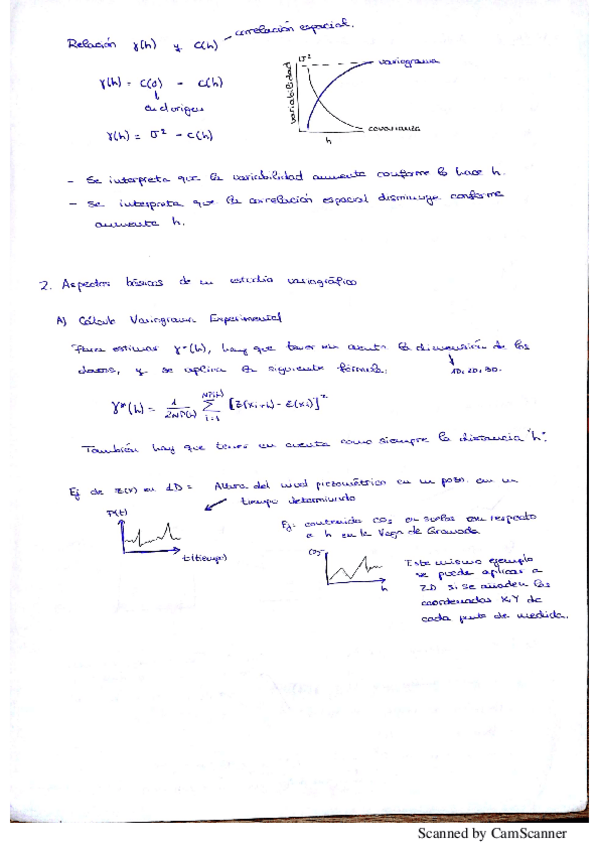 Relación γ(h) y C(h) – correlación espacial.
γ(h) = C(0) - C(h)
↓
en el origen
γ(h) = σ² - C(h)
σ²
variograma
variabilidad
covarianza
h
- Se interpreta que la variabilidad aumenta conforme lo hace h.
- Se interpreta que la correlación espacial disminuye conforme
aumenta h.
2. Aspectos básicos de un estudio variográfico
A) Cálculo Variograma Experimental
Para estimar γ*(h), hay que tener en cuenta la dimensión de los
datos, y se aplica la siguiente fórmula:
1D, 2D, 3D.
γ*(h) = 1/2NP(h) Σ i=1 NP(h) [Z(xi+h) - Z(xi)]²
También hay que tener en cuenta como siempre la distancia "h".
Ej de Z(x) en 1D = Altura del nivel piezométrico en un pozo en un
tiempo determinado
t(tiempo)
Ej: contenido CO₂ en suelos con respecto
a h en la Vega de Granada
CO₂
h
Este mismo ejemplo
se puede aplicar a
2D si se añaden las
coordenadas X,Y de
cada punto de medida.
Scanned by CamScanner